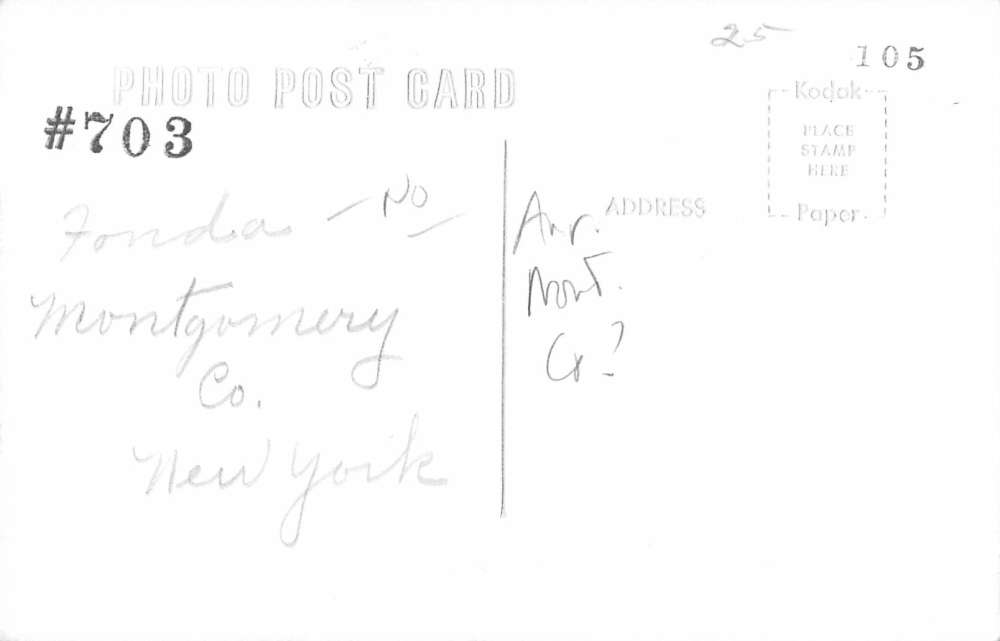 25
105
PHOTO POST CARD
#703
Kodak
PLACE
STAMP
HERE
Paper
ADDRESS
Fonda - No -
Montgomery
Co.
New York
Mont.
Co?